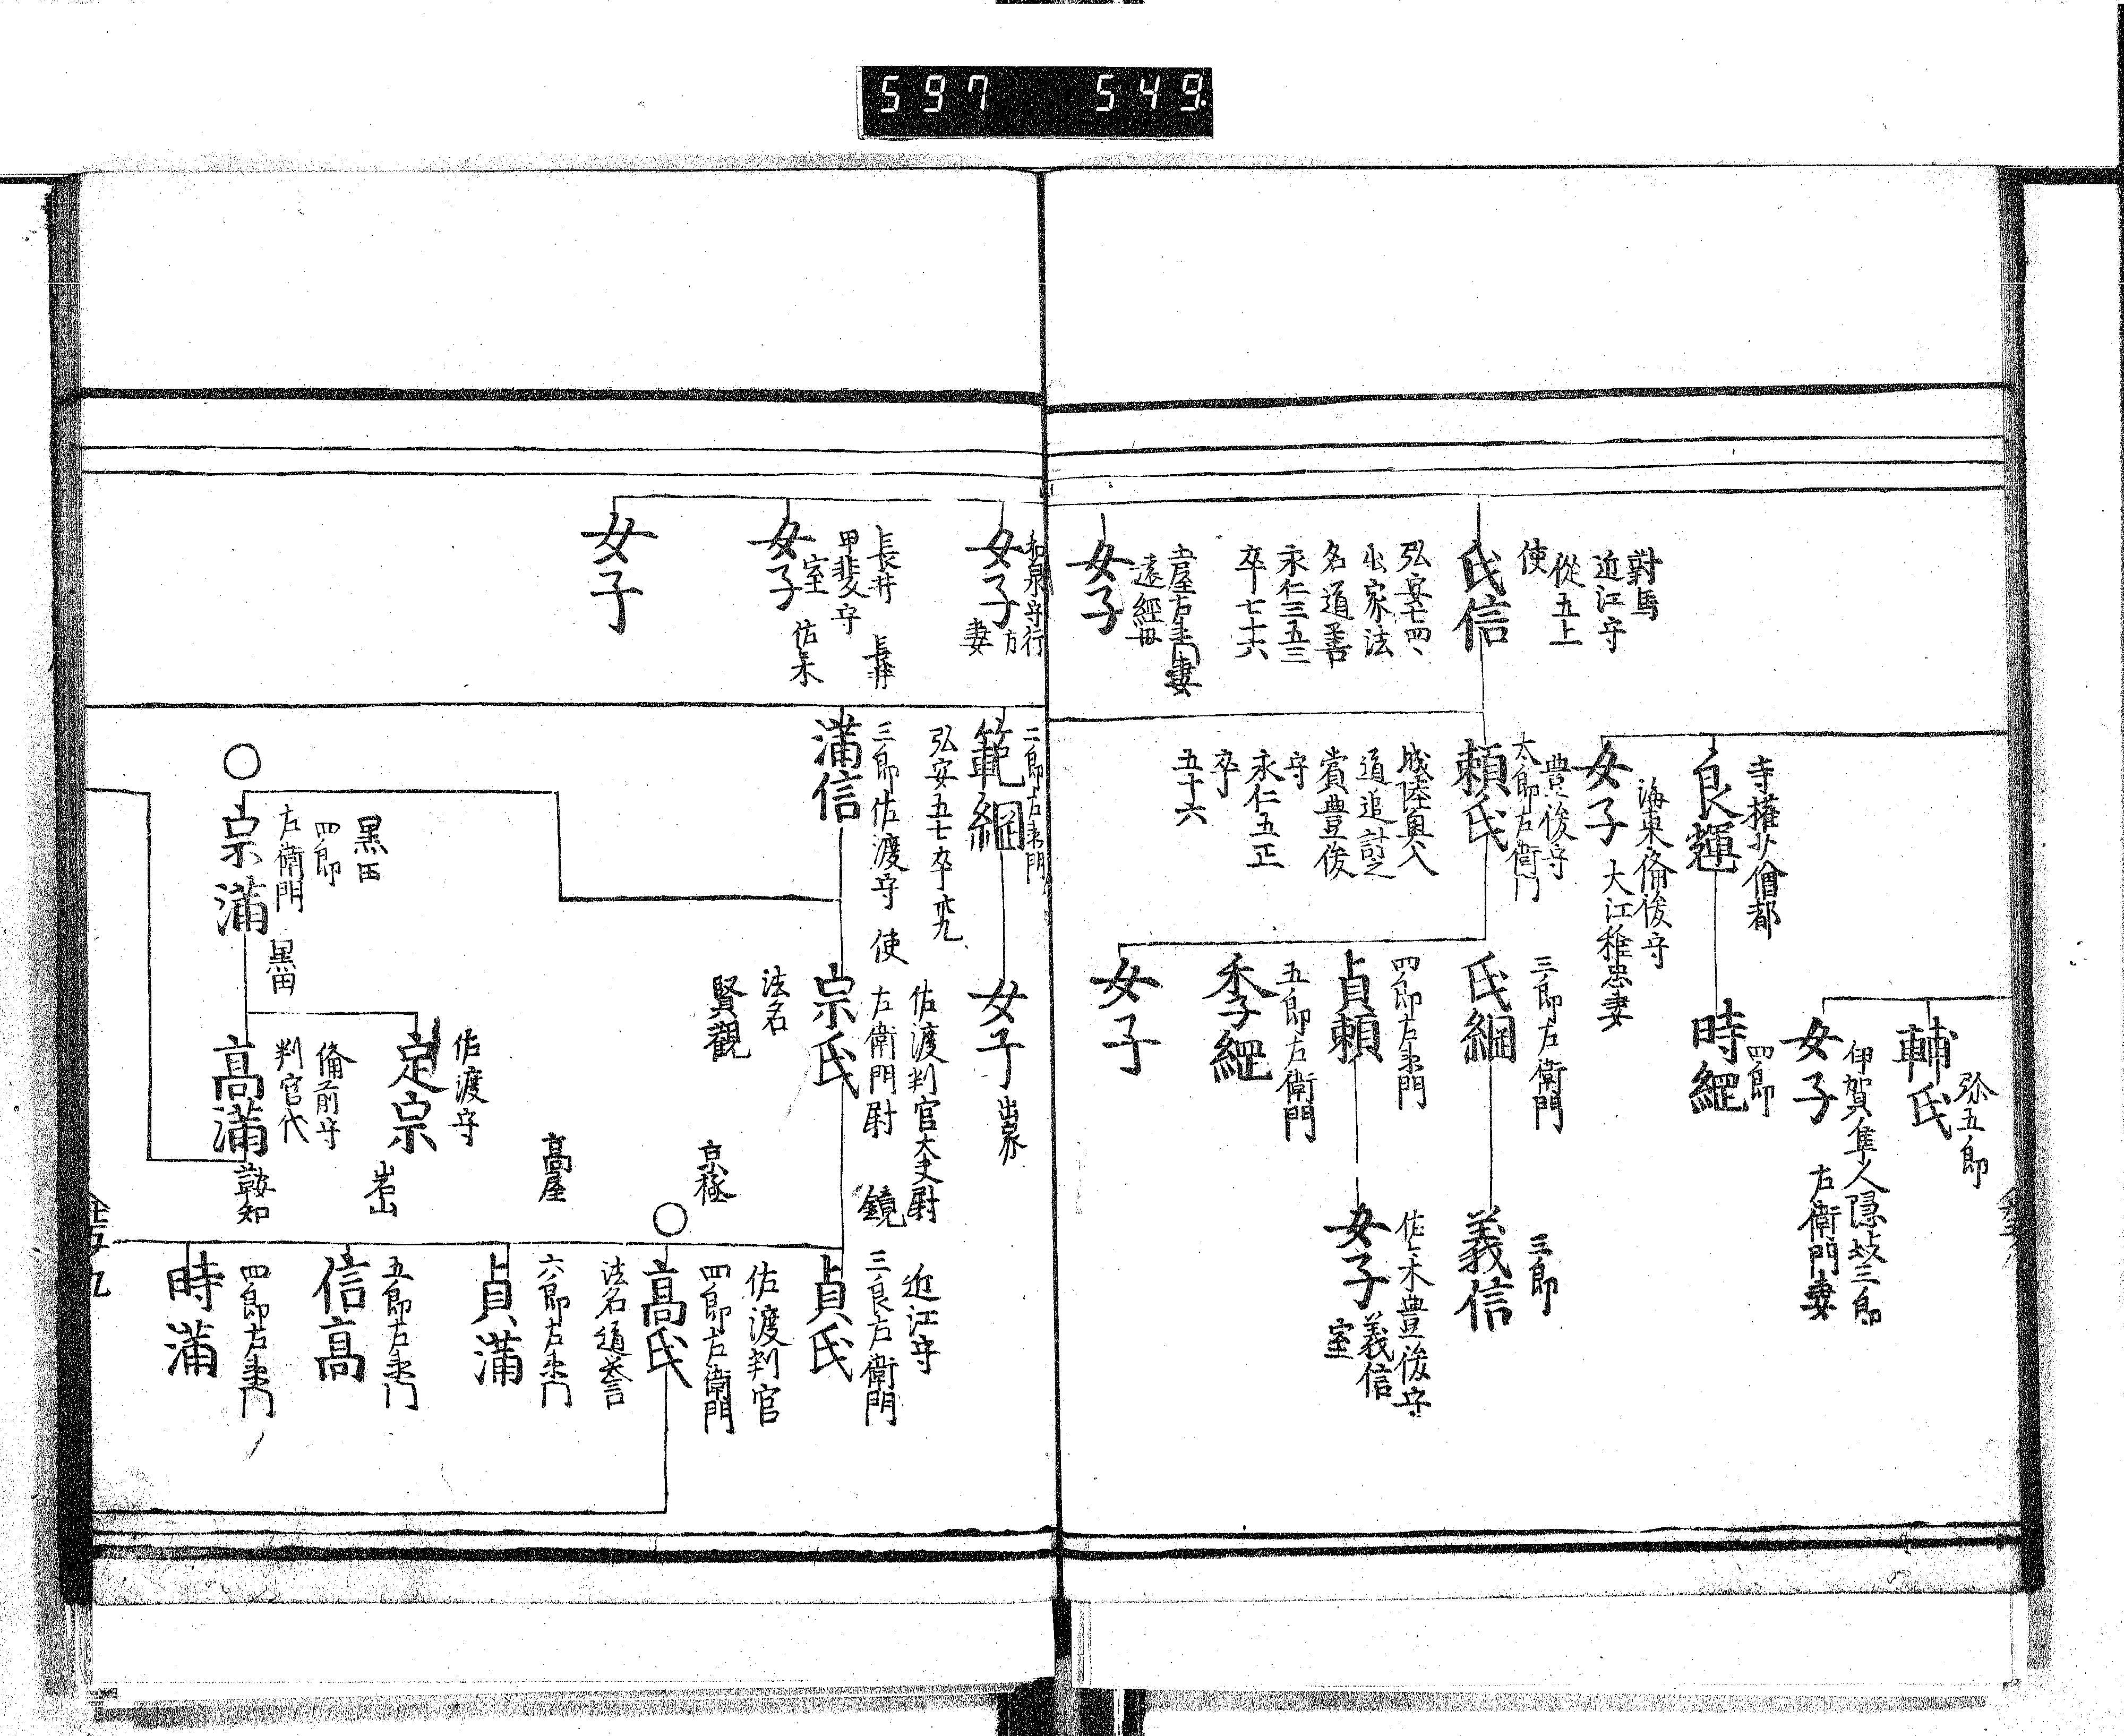 597 549.
弥五郎
輔氏
伊賀隼人隠岐三郎
左衛門妻
女子
寺權少僧都
良輝
四郎
時綱
海東備後守
大江稚忠妻
女子
對馬
近江守
從五上
使
氏信
弘安七四、
出家法
名道善
永仁三五三
卒七十六
豊後守
太郎左衛門
頼氏
城陸奥入
道追討之
賞豊後
守
永仁五正
卒
五十六
三郎左衛門
氏綱
三郎
義信
四郎左衛門
貞頼
佐々木豊後守
義信
室
女子
五郎左衛門
季綱
女子
土屋左衛門妻
遠經母
女子
和泉守行
方
妻
女子
長井
甲斐守
室
長井
佐々木
女子
女子
二郎左衛門
範綱
弘安五七卒
女子
出家
滿信
三郎佐渡守 使
佐渡判官大夫尉
左衛門尉
鏡
宗氏
法名
賢觀
近江守
三良左衛門
貞氏
京極
佐渡判官
四郎左衛門
高氏
法名道誉
高屋
六郎左衛門
貞滿
岩山
五郎左衛門
信高
鞍知
四郎左衛門
時滿
黒田
四郎
左衛門
黒田
宗滿
佐渡守
定宗
備前守
判官代
高滿